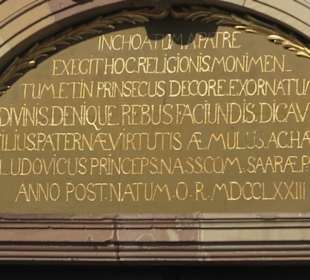 INCHOATUM A PATRE
EXEGIT HOC RELIGIONIS MONIMEN_
TUM ET IN PRINSECUS DECORE EXORNATU
DIVINIS. DENIQUE. REBUS FACIUNDIS. DICAV
FILIUS PATERNÆ VIRTUTIS ÆMULUS. AC HÆ
LUDOVICUS PRINCEPS. NASS. COM. SARÆ. P
ANNO POST. NATUM. O. R. MDCCLXXIII